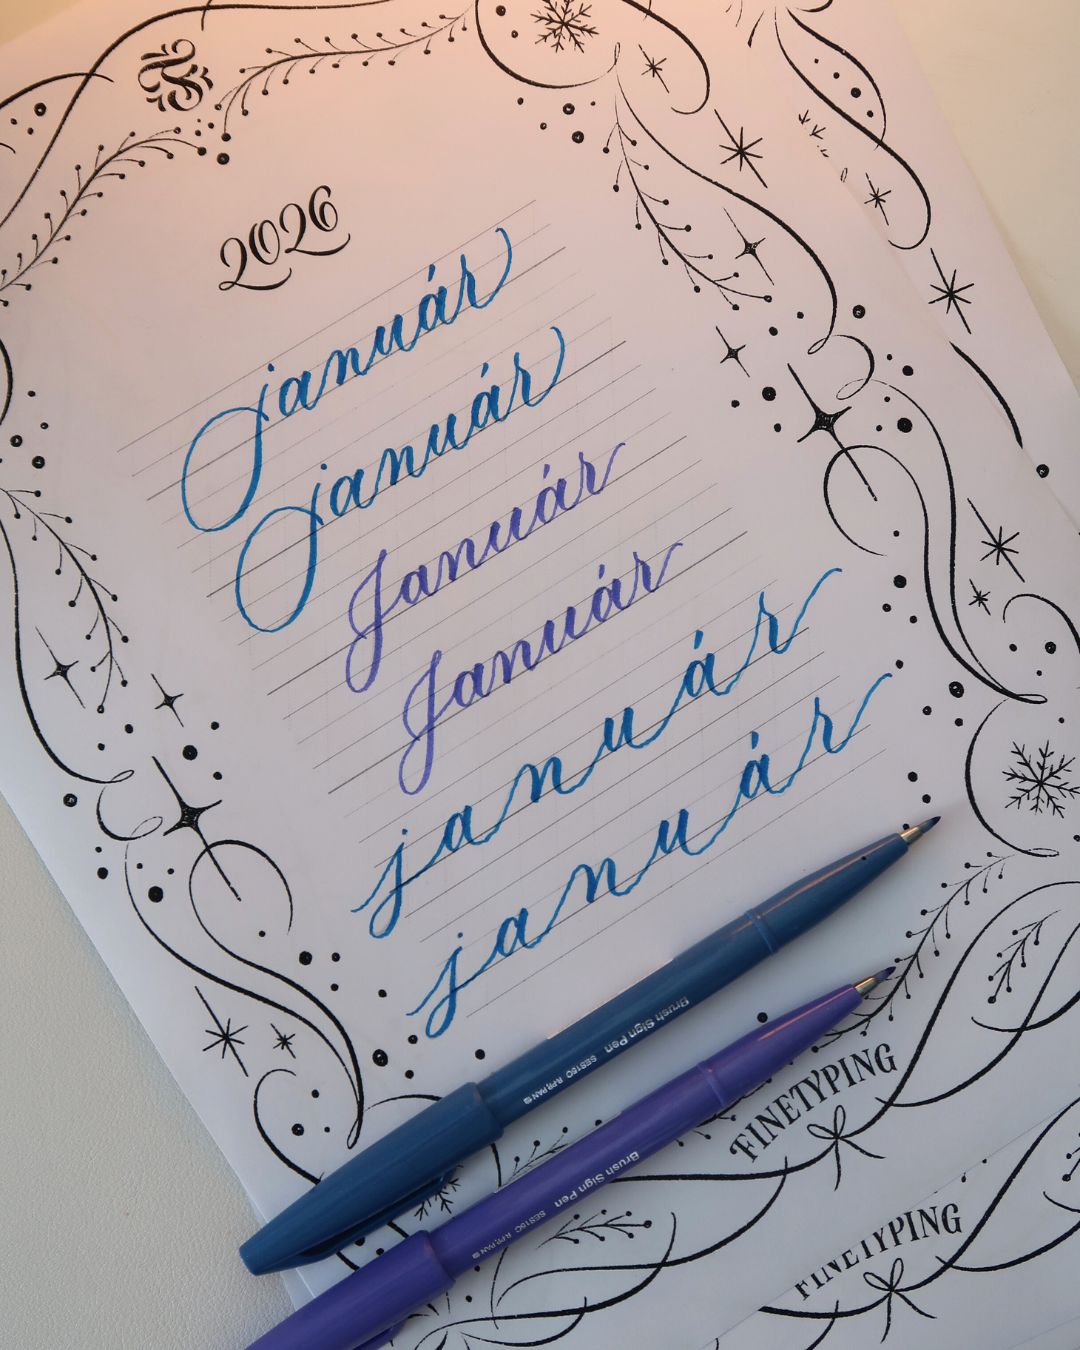 2026
január
január
Január
Január
január
január
Brush Sign Pen SES15C
Brush Sign Pen SES15C
FINETYPING
FINETYPING